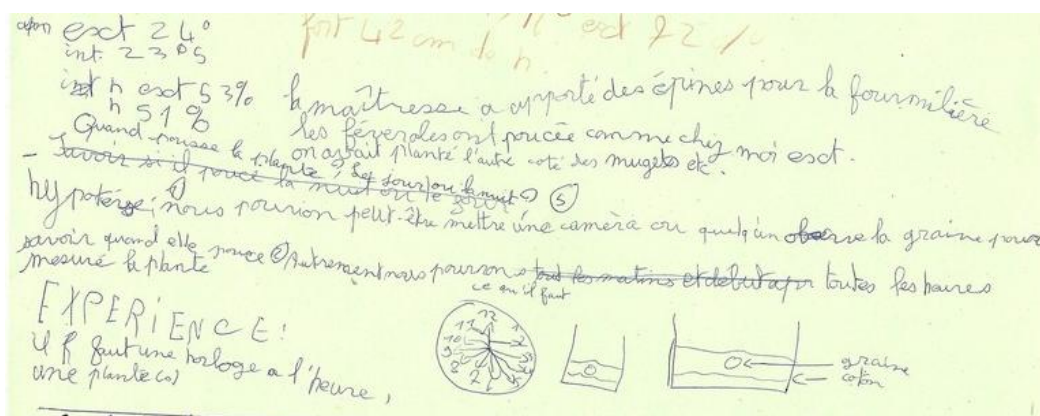 apm ext 24°
int. 23°5
fort 42 cm de h ext 72 %
int h ext 53%
h 51 %
la maîtresse a apporté des épines pour la fourmilière
les féveroles ont poucée comme chez moi ext.
on avait planté l'autre coté des mugets etc.
Quand pousse la plante, le jour ou la nuit ⑤
- savoir si il poucé la nuit ou le jour
hypotérse; ① nous pourion peut-être mettre une camèra ou quelqu'un observe la graine pour
savoir quand elle pouce ② Autrement nous pourron tout les matins et debut apm toutes les heures
mesuré la plante
ce qu'il faut
EXPERiENCE:
il faut une horloge a l'heure,
une plante
12 1 2 11 10 9 8 7
graine
coton